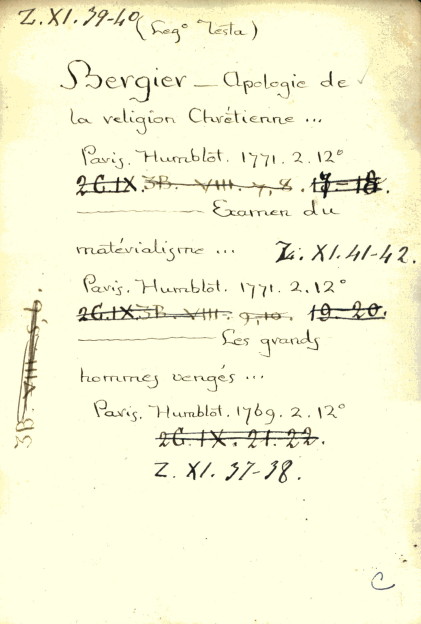 Z. XI. 39-40 (Leg° Testa)
Bergier — Apologie de
la religion Chrétienne ...
Paris. Humblot. 1771. 2. 12°
2C.IX. 3B. VIII. 7, 8. 17-18.
——— Examen du
matérialisme ... Z. XI. 41-42.
Paris. Humblot. 1771. 2. 12°
2C.IX. 3B. VIII. 9, 10. 19-20.
——— Les grands
hommes vengés ...
Paris. Humblot. 1769. 2. 12°
2C. IX. 21. 22.
Z. XI. 37-38.
3B. VIII. 5, 6.
C